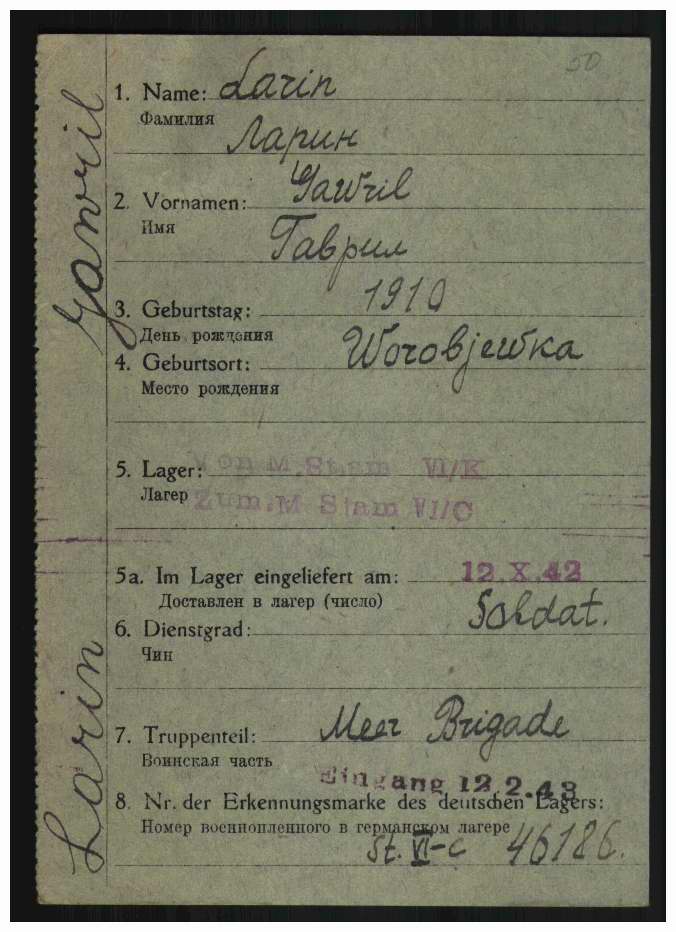 50
1. Name: Larin
Фамилия
Ларин
2. Vornamen: Gawril
Имя
Гаврил
3. Geburtstag: 1910
День рождения
4. Geburtsort: Worobjewka
Место рождения
5. Lager: M. Stam VI/K
Лагер
Zum. M Stam VI/C
5a. Im Lager eingeliefert am: 12. X. 42
Доставлен в лагер (число)
6. Dienstgrad: Soldat.
Чин
7. Truppenteil: Meer Brigade
Воинская часть
Eingang 12 2. 43
8. Nr. der Erkennungsmarke des deutschen Lagers:
Номер военнопленного в германском лагере
St. VI-c 46186.
Larin Gawril